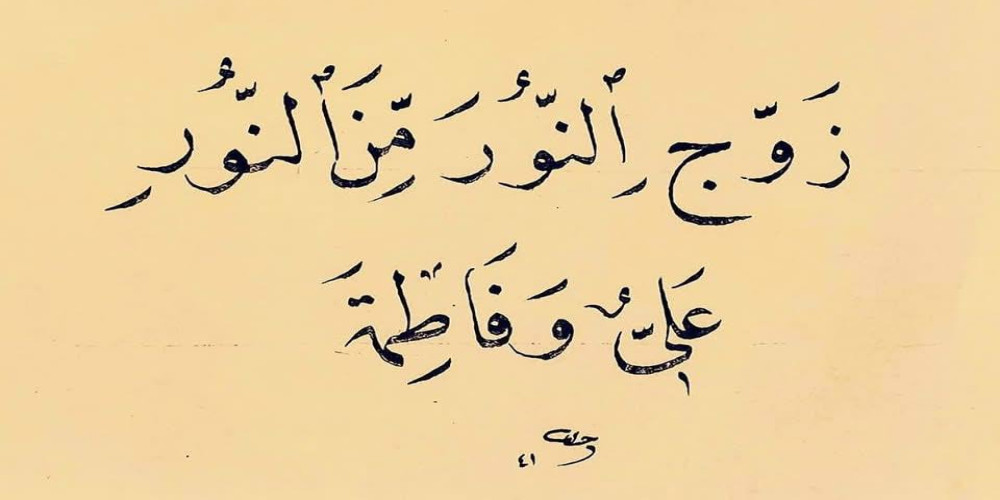 زَوِّجِ ٱلنُّورَ مِّنَ ٱلنُّورِ
عَلِيٌّ وَفَاطِمَةَ
٤١